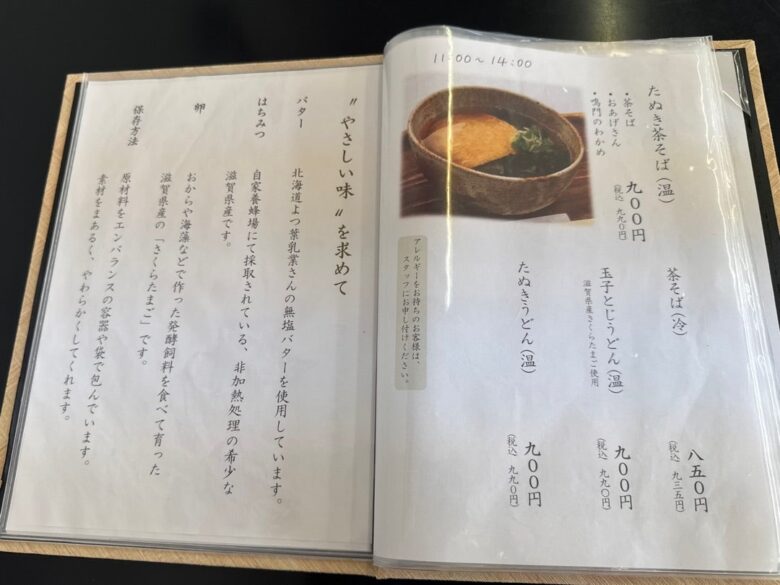 11:00～14:00
たぬき茶そば（温）
・茶そば
・おあげさん
・鳴門のわかめ
九〇〇円
（税込 九九〇円）
茶そば（冷）
八五〇円
（税込 九三五円）
玉子とじうどん（温）
滋賀県産さくらたまご使用
九〇〇円
（税込 九九〇円）
たぬきうどん（温）
九〇〇円
（税込 九九〇円）
アレルギーをお持ちのお客様は、
スタッフにお申し付けください。
〝やさしい味〟を求めて
バター
北海道よつ葉乳業さんの無塩バターを使用しています。
はちみつ
自家養蜂場にて採取されている、非加熱処理の希少な
滋賀県産です。
卵
おからや海藻などで作った発酵飼料を食べて育った
滋賀県産の「さくらたまご」です。
保存方法
原材料をエンバランスの容器や袋で包んでいます。
素材をまあるく、やわらかくしてくれます。